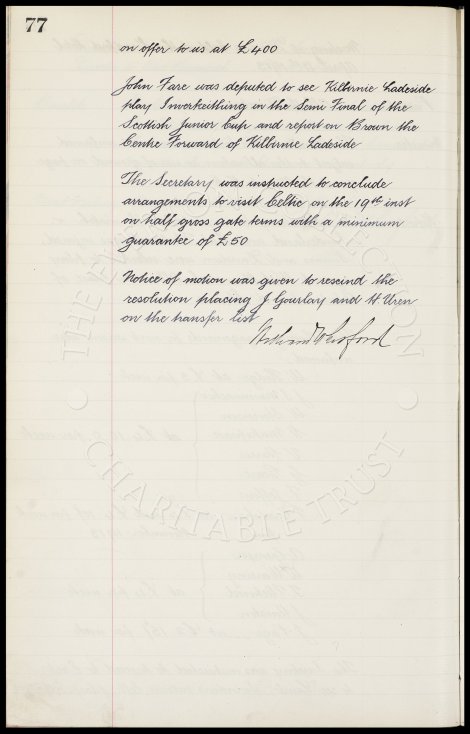 77
on offer to us at £400
John Fare was deputed to see Kilbirnie Ladeside
play Inverkeithing in the Semi Final of the
Scottish Junior Cup and report on Brown the
Centre Forward of Kilbirnie Ladeside
The Secretary was instructed to conclude
arrangements to visit Celtic on the 19th inst
on half gross gate terms with a minimum
guarantee of £50
Notice of motion was given to rescind the
resolution placing J Gourlay and H. Uren
on the transfer list
THE EV COLLECTION
CHARITABLE TRUST